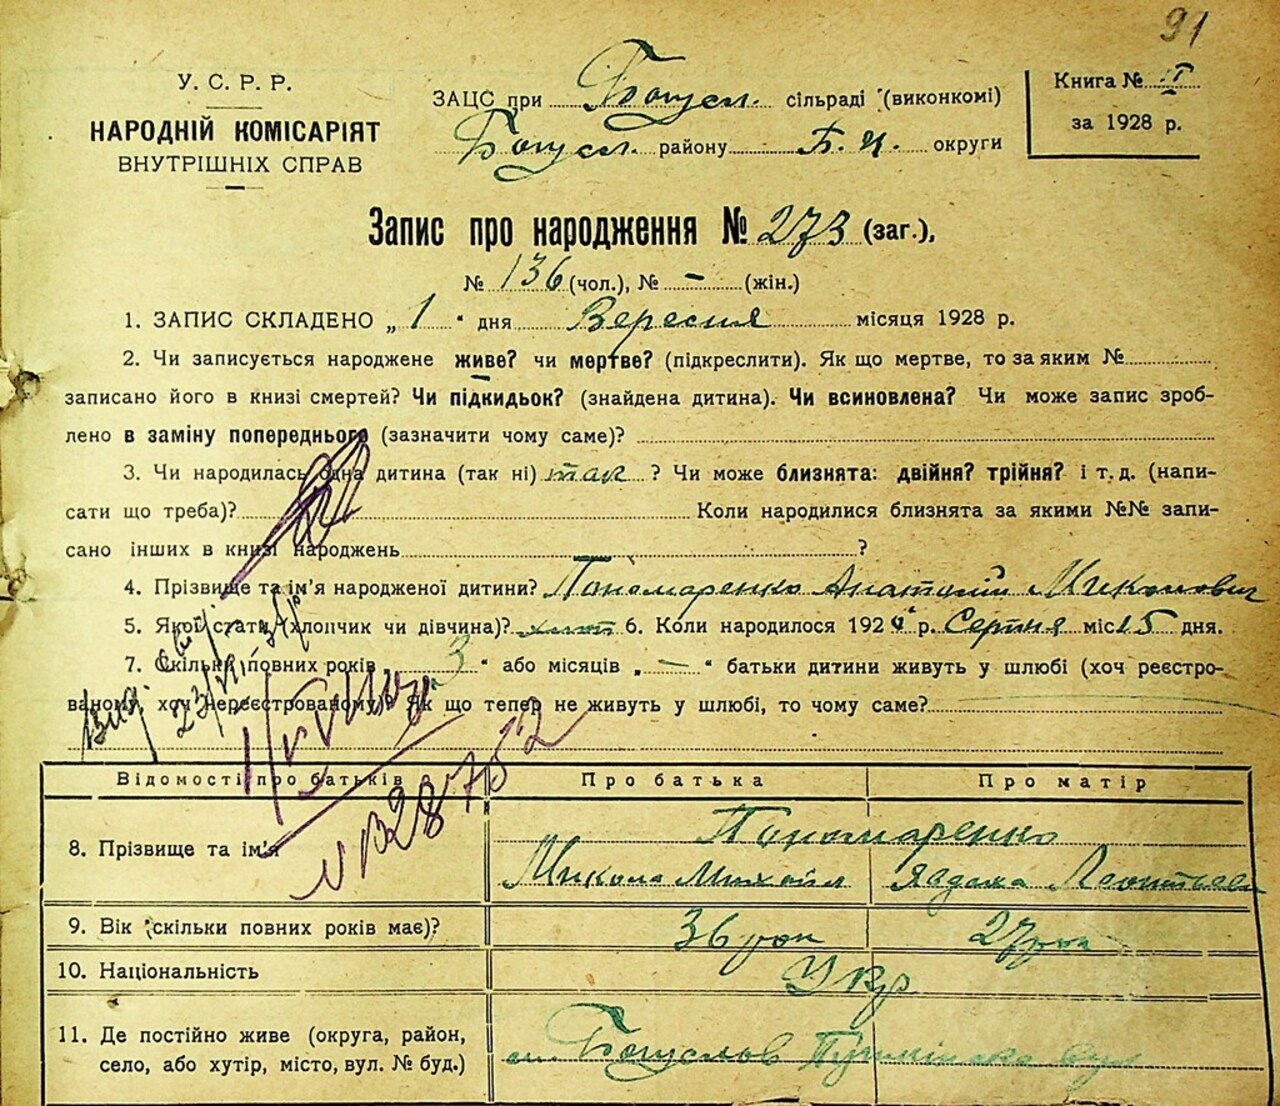 91
У. С. Р. Р.
НАРОДНІЙ КОМІСАРІЯТ
ВНУТРІШНІХ СПРАВ
ЗАЦС при Богусл. сільраді (виконкомі)
Богусл. району Б. Ц. округи
Книга № І
за 1928 р.
Запис про народження № 273 (заг.),
№ 136 (чол.), № – (жін.)
1. ЗАПИС СКЛАДЕНО „ 1 “ дня Вересня місяця 1928 р.
2. Чи записується народжене живе? чи мертве? (підкреслити). Як що мертве, то за яким №
записано його в книзі смертей? Чи підкидьок? (знайдена дитина). Чи всиновлена? Чи може запис зроб-
лено в заміну попереднього (зазначити чому саме)?
3. Чи народилась одна дитина (так ні) так ? Чи може близнята: двійня? трійня? і т. д. (напи-
сати що треба)? Коли народилися близнята за якими №№ запи-
сано інших в книзі народжень ?
4. Прізвище та ім’я народженої дитини? Пономаренко Анатолій Миколович
5. Якої стати (хлопчик чи дівчина)? хлоп 6. Коли народилося 1928 р. Серпня міс 15 дня.
7. Скільки повних років „ 3 “ або місяців „ — “ батьки дитини живуть у шлюбі (хоч реєстро-
ваному, хоч нереєстрованому)? Як що тепер не живуть у шлюбі, то чому саме?
Відомості про батьків Про батька Про матір
8. Прізвище та ім’я Пономаренко
Микола Михайл Явдоха Леонтьев
9. Вік (скільки повних років має)? 36 рок 27 рок
10. Національність Укр
11. Де постійно живе (округа, район,
село, або хутір, місто, вул. № буд.) Богуслов Пушкінська вул